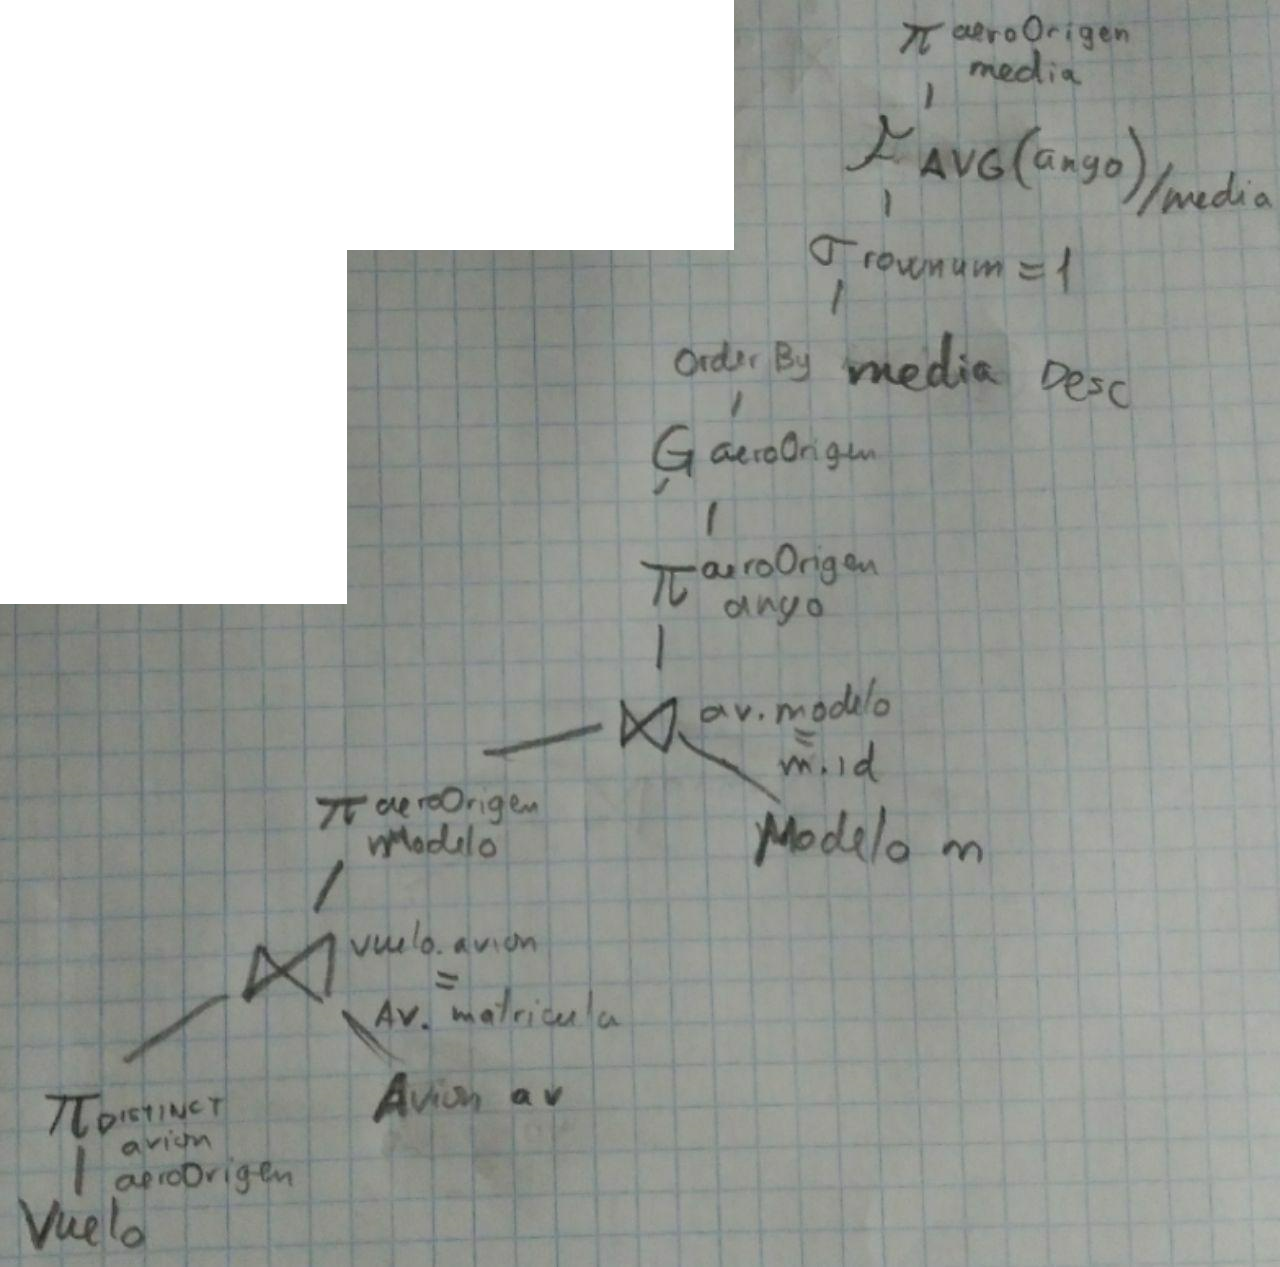 π aeroOrigen
media
F AVG(anyo)/media
σ rownum = 1
Order By media Desc
G aeroOrigen
π aeroOrigen
anyo
⋈ av.modelo
=
m.id
π aeroOrigen
Modelo
Modelo m
⋈ vuelo.avion
=
Av. matricula
Avion av
π DISTINCT
avion
aeroOrigen
Vuelo